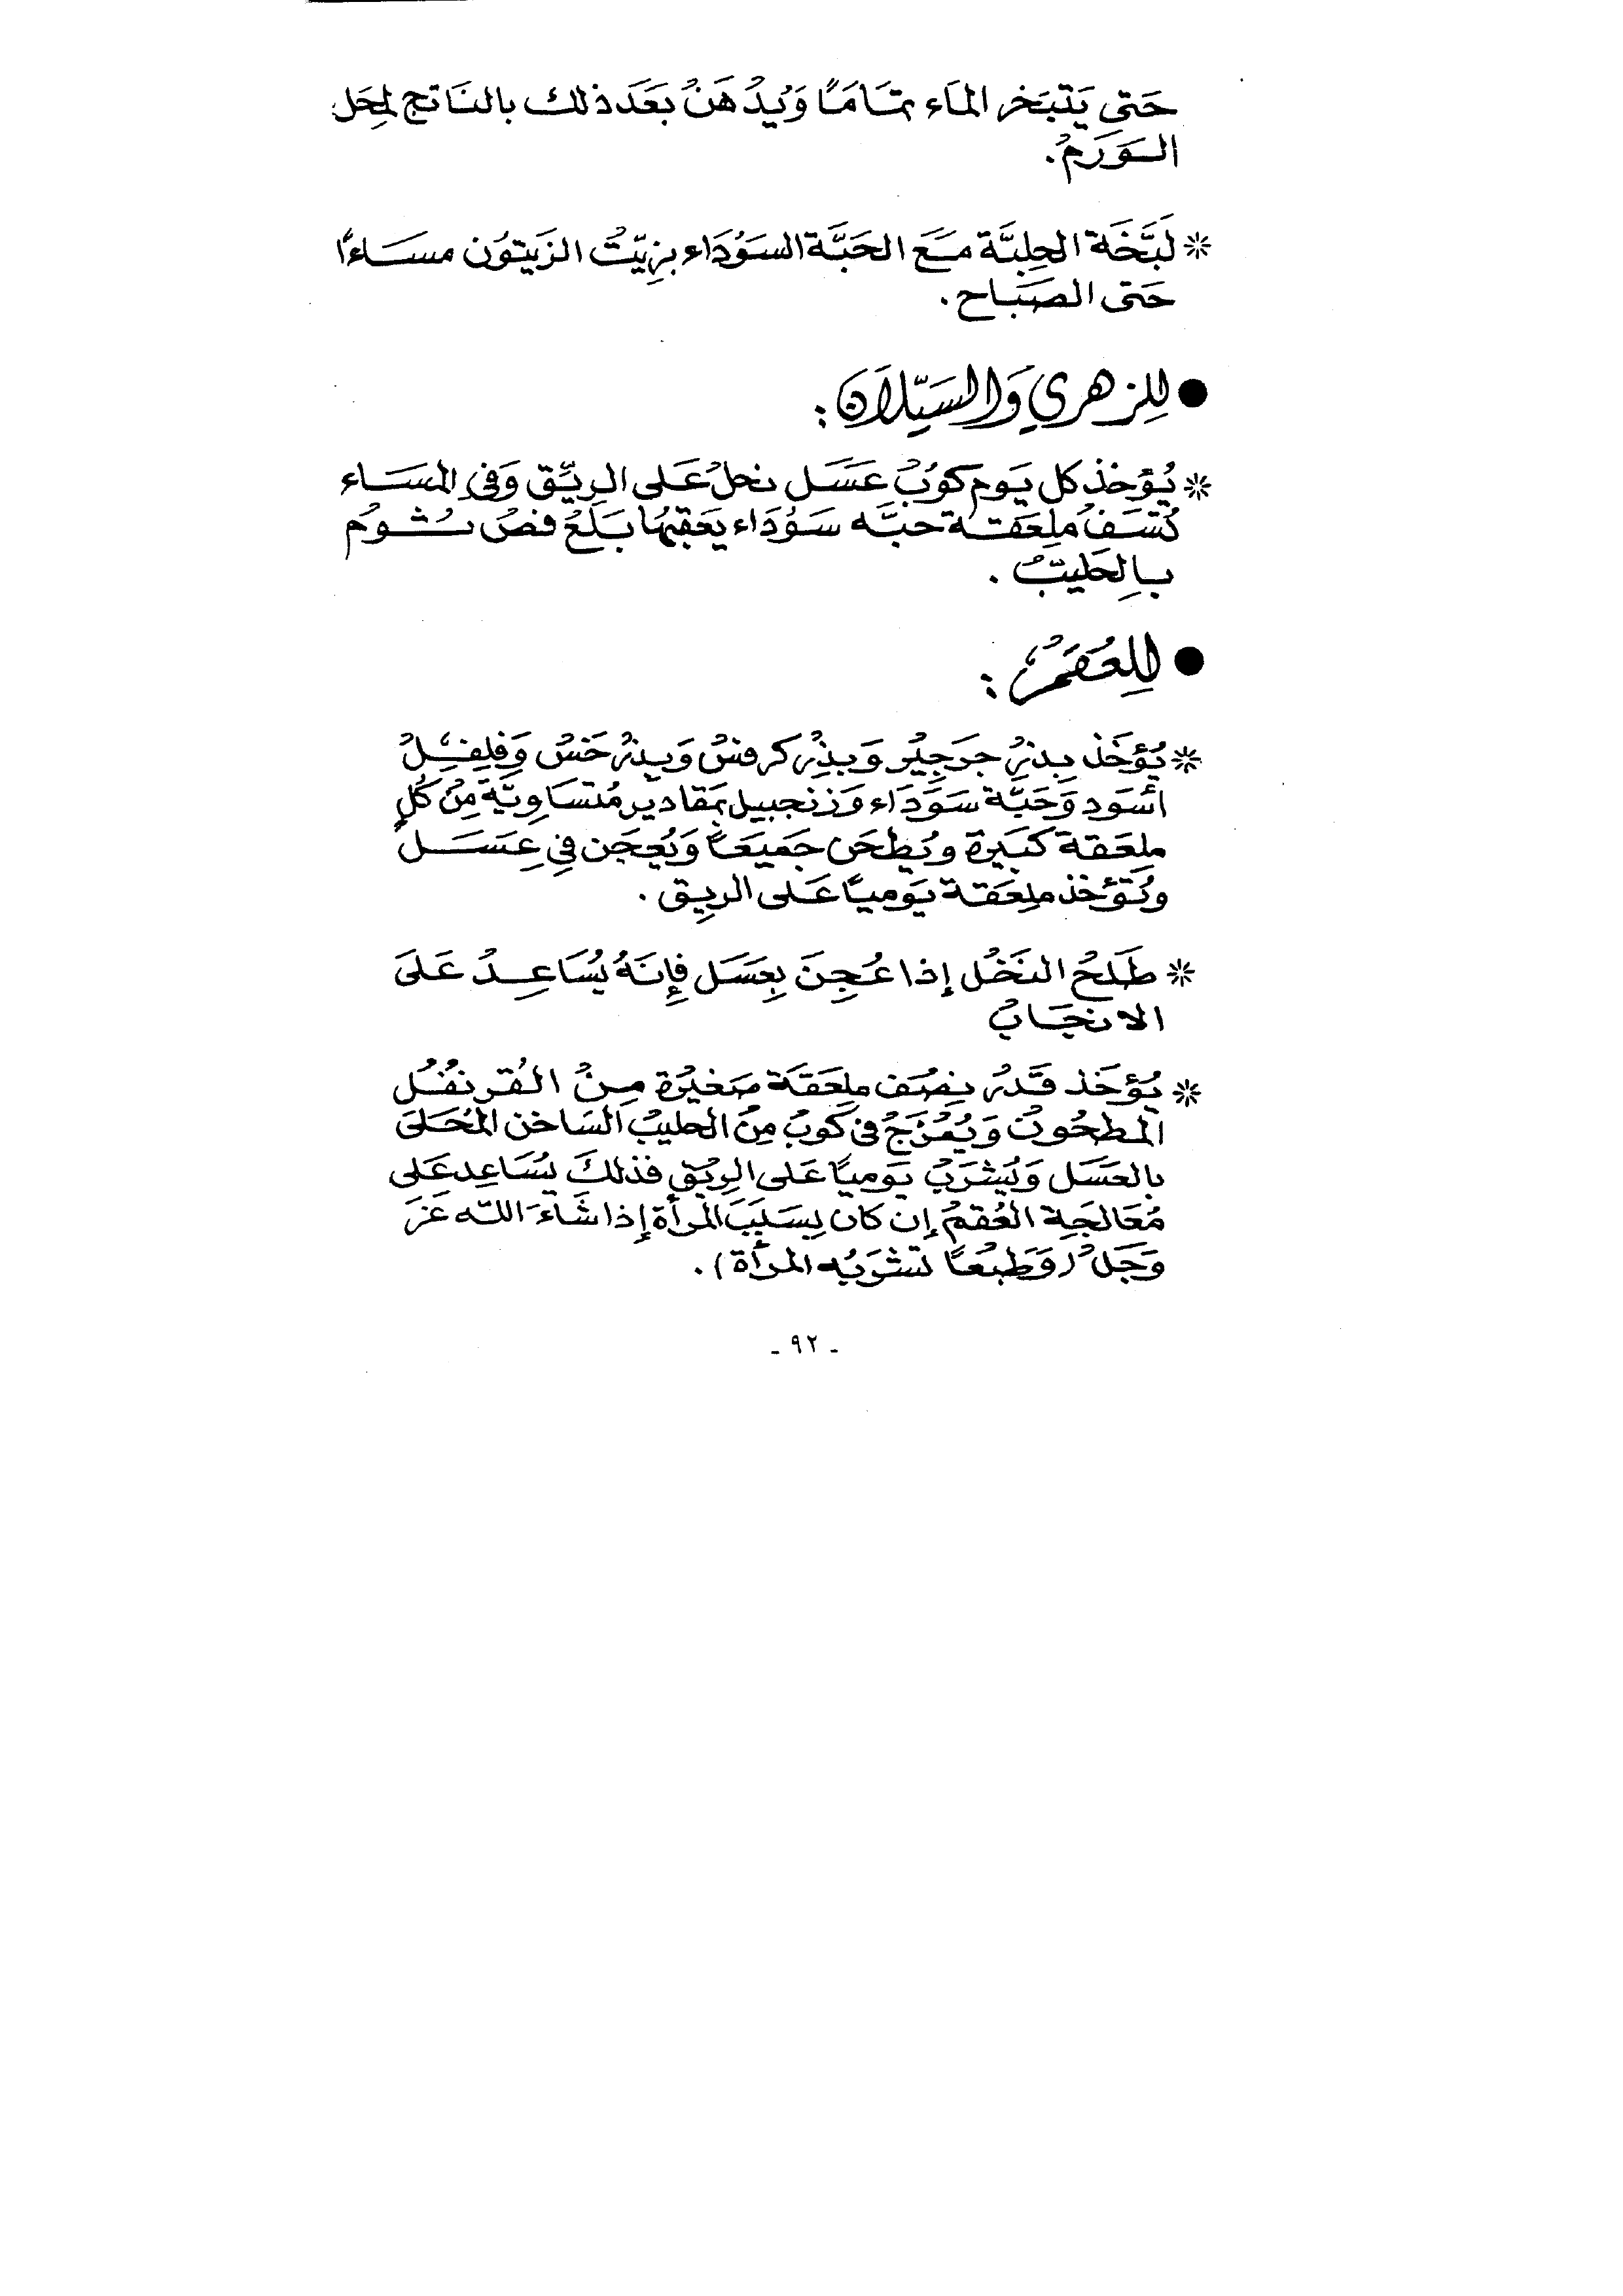 حَتى يَتبَخر الماَء تمَامًا وَيُدْهَنْ بَعَدَ ذلك بالنَاتج لمِحَل
الـوَرَمْ.
* لَبَّخَة الحِلبَّة مَعَ الحَبَّة السَوْدَاء بزيّتْ الزَيتوُن مسَاءًا
حَتى الصَبَاح.
● للِزهري وَالسَيّلَان :
* يُؤخذ كل يَوم كوُبْ عَسَل نحلْ عَلى الريِّق وَفي المسَاء
تُسَفْ ملِعَقة حبَّه سَوْدَاء يَعَقبهُا بَلَعْ فصْ ثـومْ
بـالِحَليبْ .
● للِعُقمْ :
* يُؤخَذ بِذرْ جرَجِيْر وَبذِرْ كرفسْ وَبِذرْ خَسْ وَفلِفِلْ
أسْوَد وَحَبَّة سَوَدَاء وَزنجبيل بمَقادير مُتسَاوِيَّة مِنْ كُلٍ
ملِعَقة كَبَيرة ويُطحَن جَميَعَاً وَيُعِجَن في عِسَـل
وتُؤخذ ملِعَقة يَومياً عَلى الريِق .
* طَلَحُ النَخْل إذا عُجِنَ بِعَسَل فإِنَهُ يُسَاعِدْ عَلىَ
الانجَابْ
* يُؤخَذ قَدْر نِصْف ملِعَقَة صَغيْرة مِنْ القُرنفُل
المطحُونْ وَيُمْزَجْ في كَوبْ مِنْ الحليبْ السَاخن المُحَلىَ
بالعَسَل وَيُشرَبْ يَومياً عَلى الرِيْق فذلكَ يُسَاعِد عَلى
مُعَالجَةِ العُقمْ إن كان بِسَبَبَ المرأة إذا شَاءَ اللّه عَزَ
وَجَلْ (وَطَبعْاً تشرَبُه المرأة).
- ٩٢ -